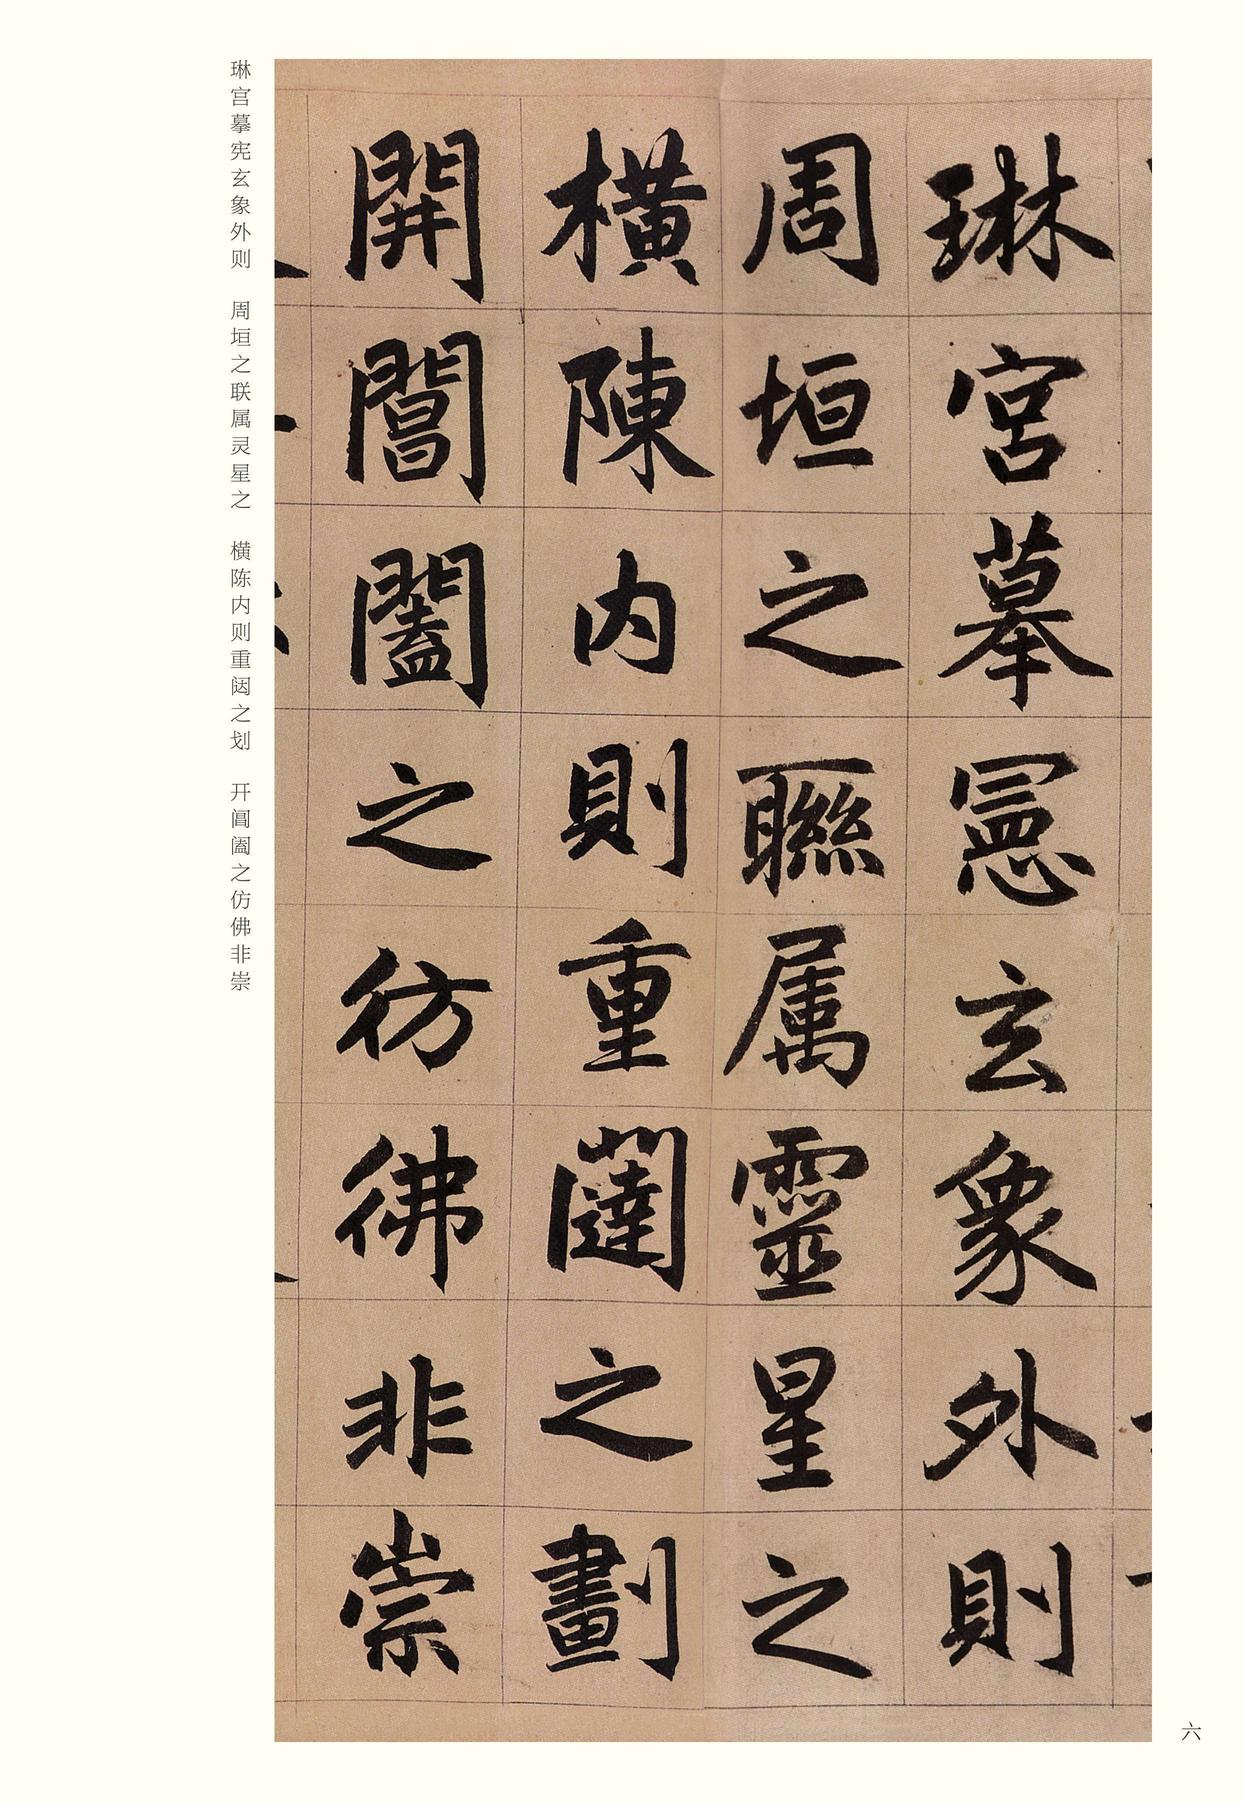 琳宮摹憲玄象外則
周垣之聮属靈星之
橫陳内則重闥之劃
開閶闔之彷彿非崇
琳宫摹宪玄象外则　周垣之联属灵星之　横陈内则重闼之划　开阊阖之仿佛非崇
六